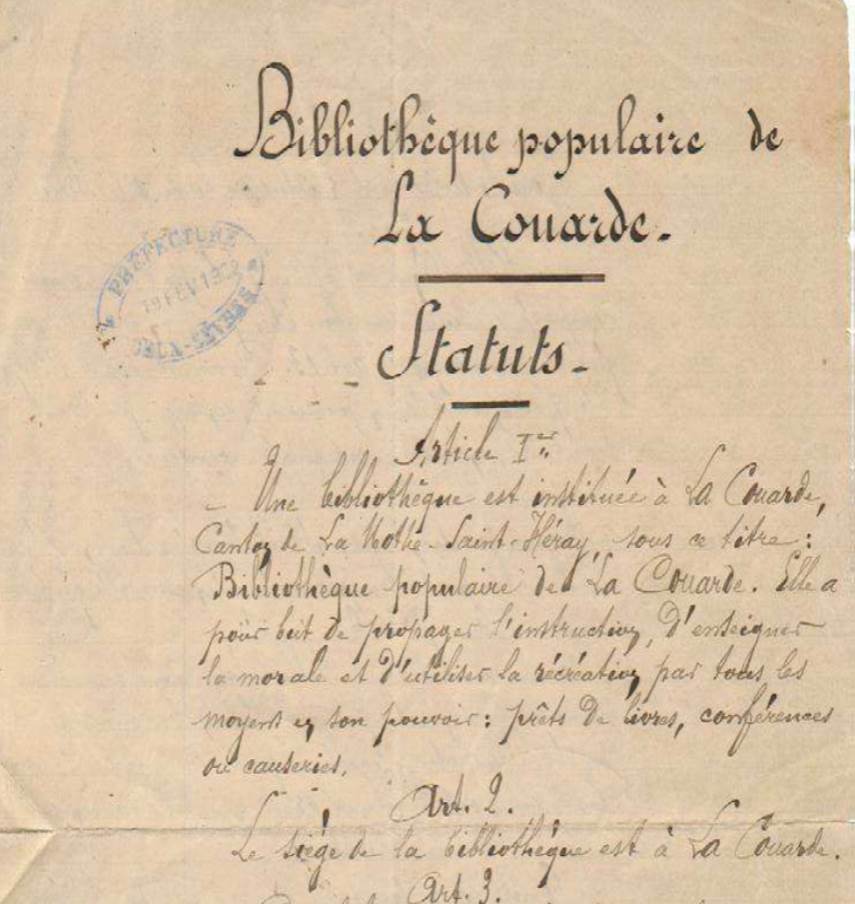 Bibliothèque populaire de
La Couarde.
PRÉFECTURE
19 FEV
DEUX-SÈVRES
Statuts.
Article 1er
Une bibliothèque est instituée à La Couarde,
Canton de La Mothe-Saint-Héray, sous ce titre :
Bibliothèque populaire de La Couarde. Elle a
pour but de propager l'instruction, d'enseigner
la morale et d'utiliser la récréation par tous les
moyens en son pouvoir : prêts de livres, conférences
ou causeries.
Art. 2.
Le siège de la bibliothèque est à La Couarde.
Art. 3.